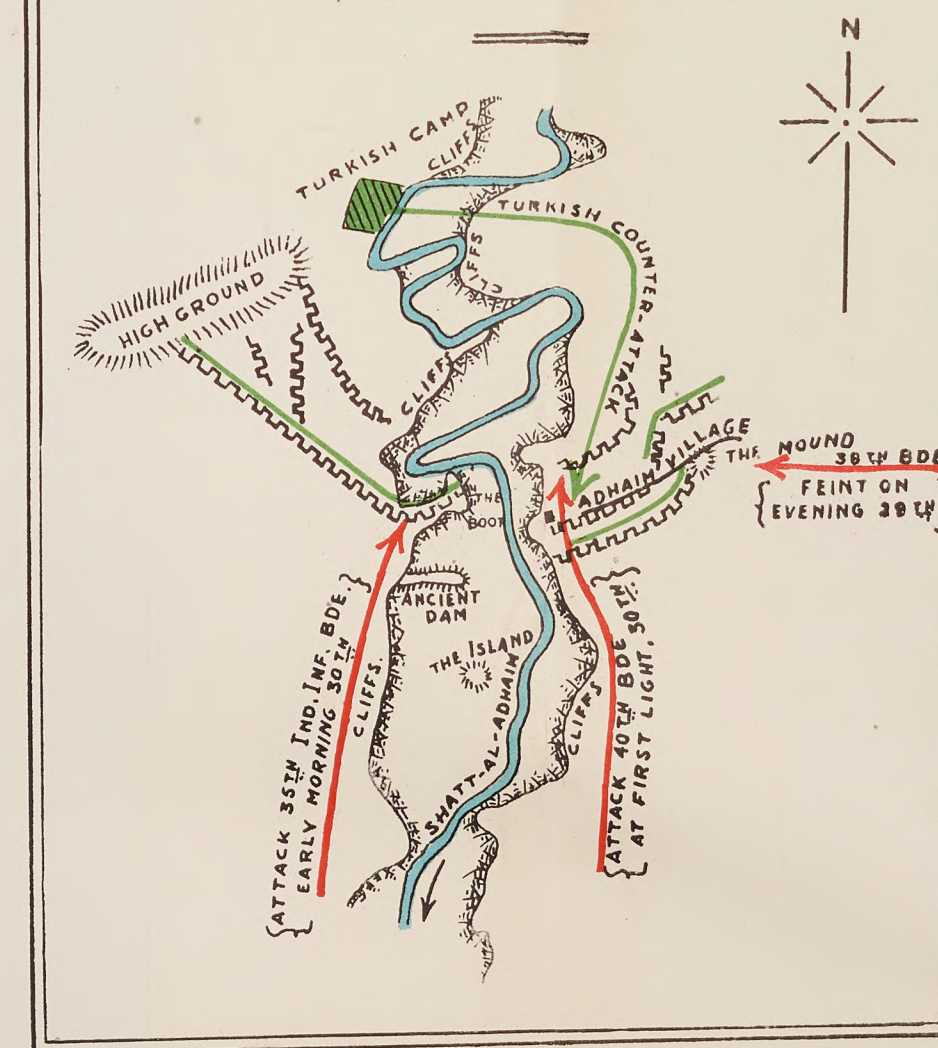 N
TURKISH CAMP
CLIFFS
TURKISH COUNTER-ATTACK
CLIFFS
HIGH GROUND
CLIFF
ADHAIM VILLAGE
THE MOUND
38TH BDE
{FEINT ON
EVENING 29TH}
THE
BOOT
ANCIENT
DAM
THE ISLAND
SHATT-AL-ADHAIM
CLIFFS.
CLIFFS
{ATTACK 35TH IND. INF. BDE.}
EARLY MORNING 30TH
{ATTACK 40TH BDE
AT FIRST LIGHT, 30TH}